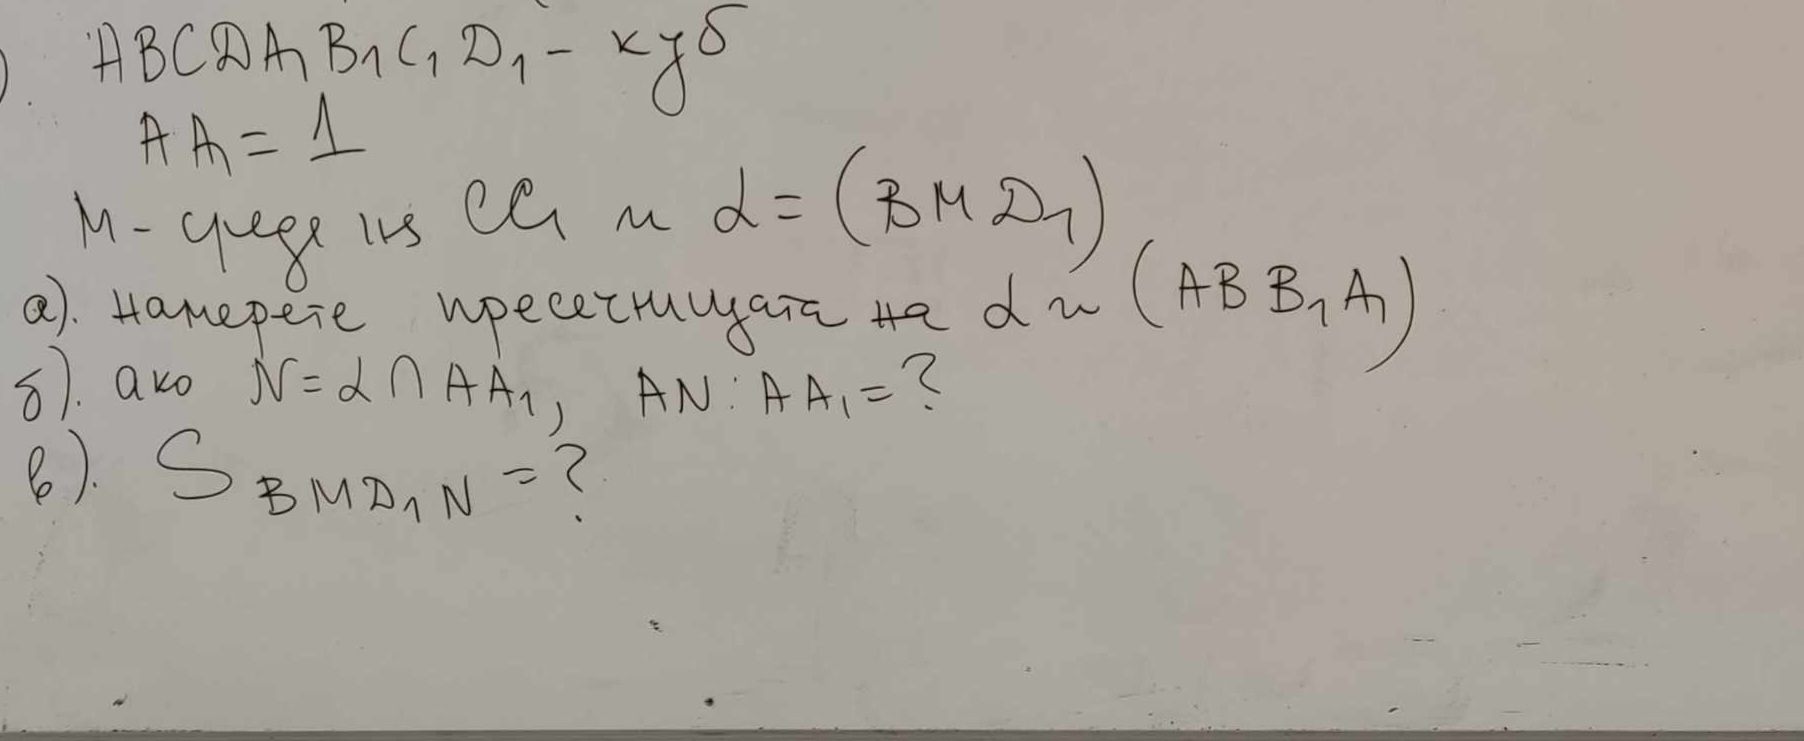 ). ABCDA₁B₁C₁D₁ - куб
AA₁ = 1
M - среда на CC₁ и α = (BMD₁)
а). Намерете пресечницата на α и (ABB₁A₁)
б). ако N = α ∩ AA₁, AN : AA₁ = ?
в). S BMD₁N = ?